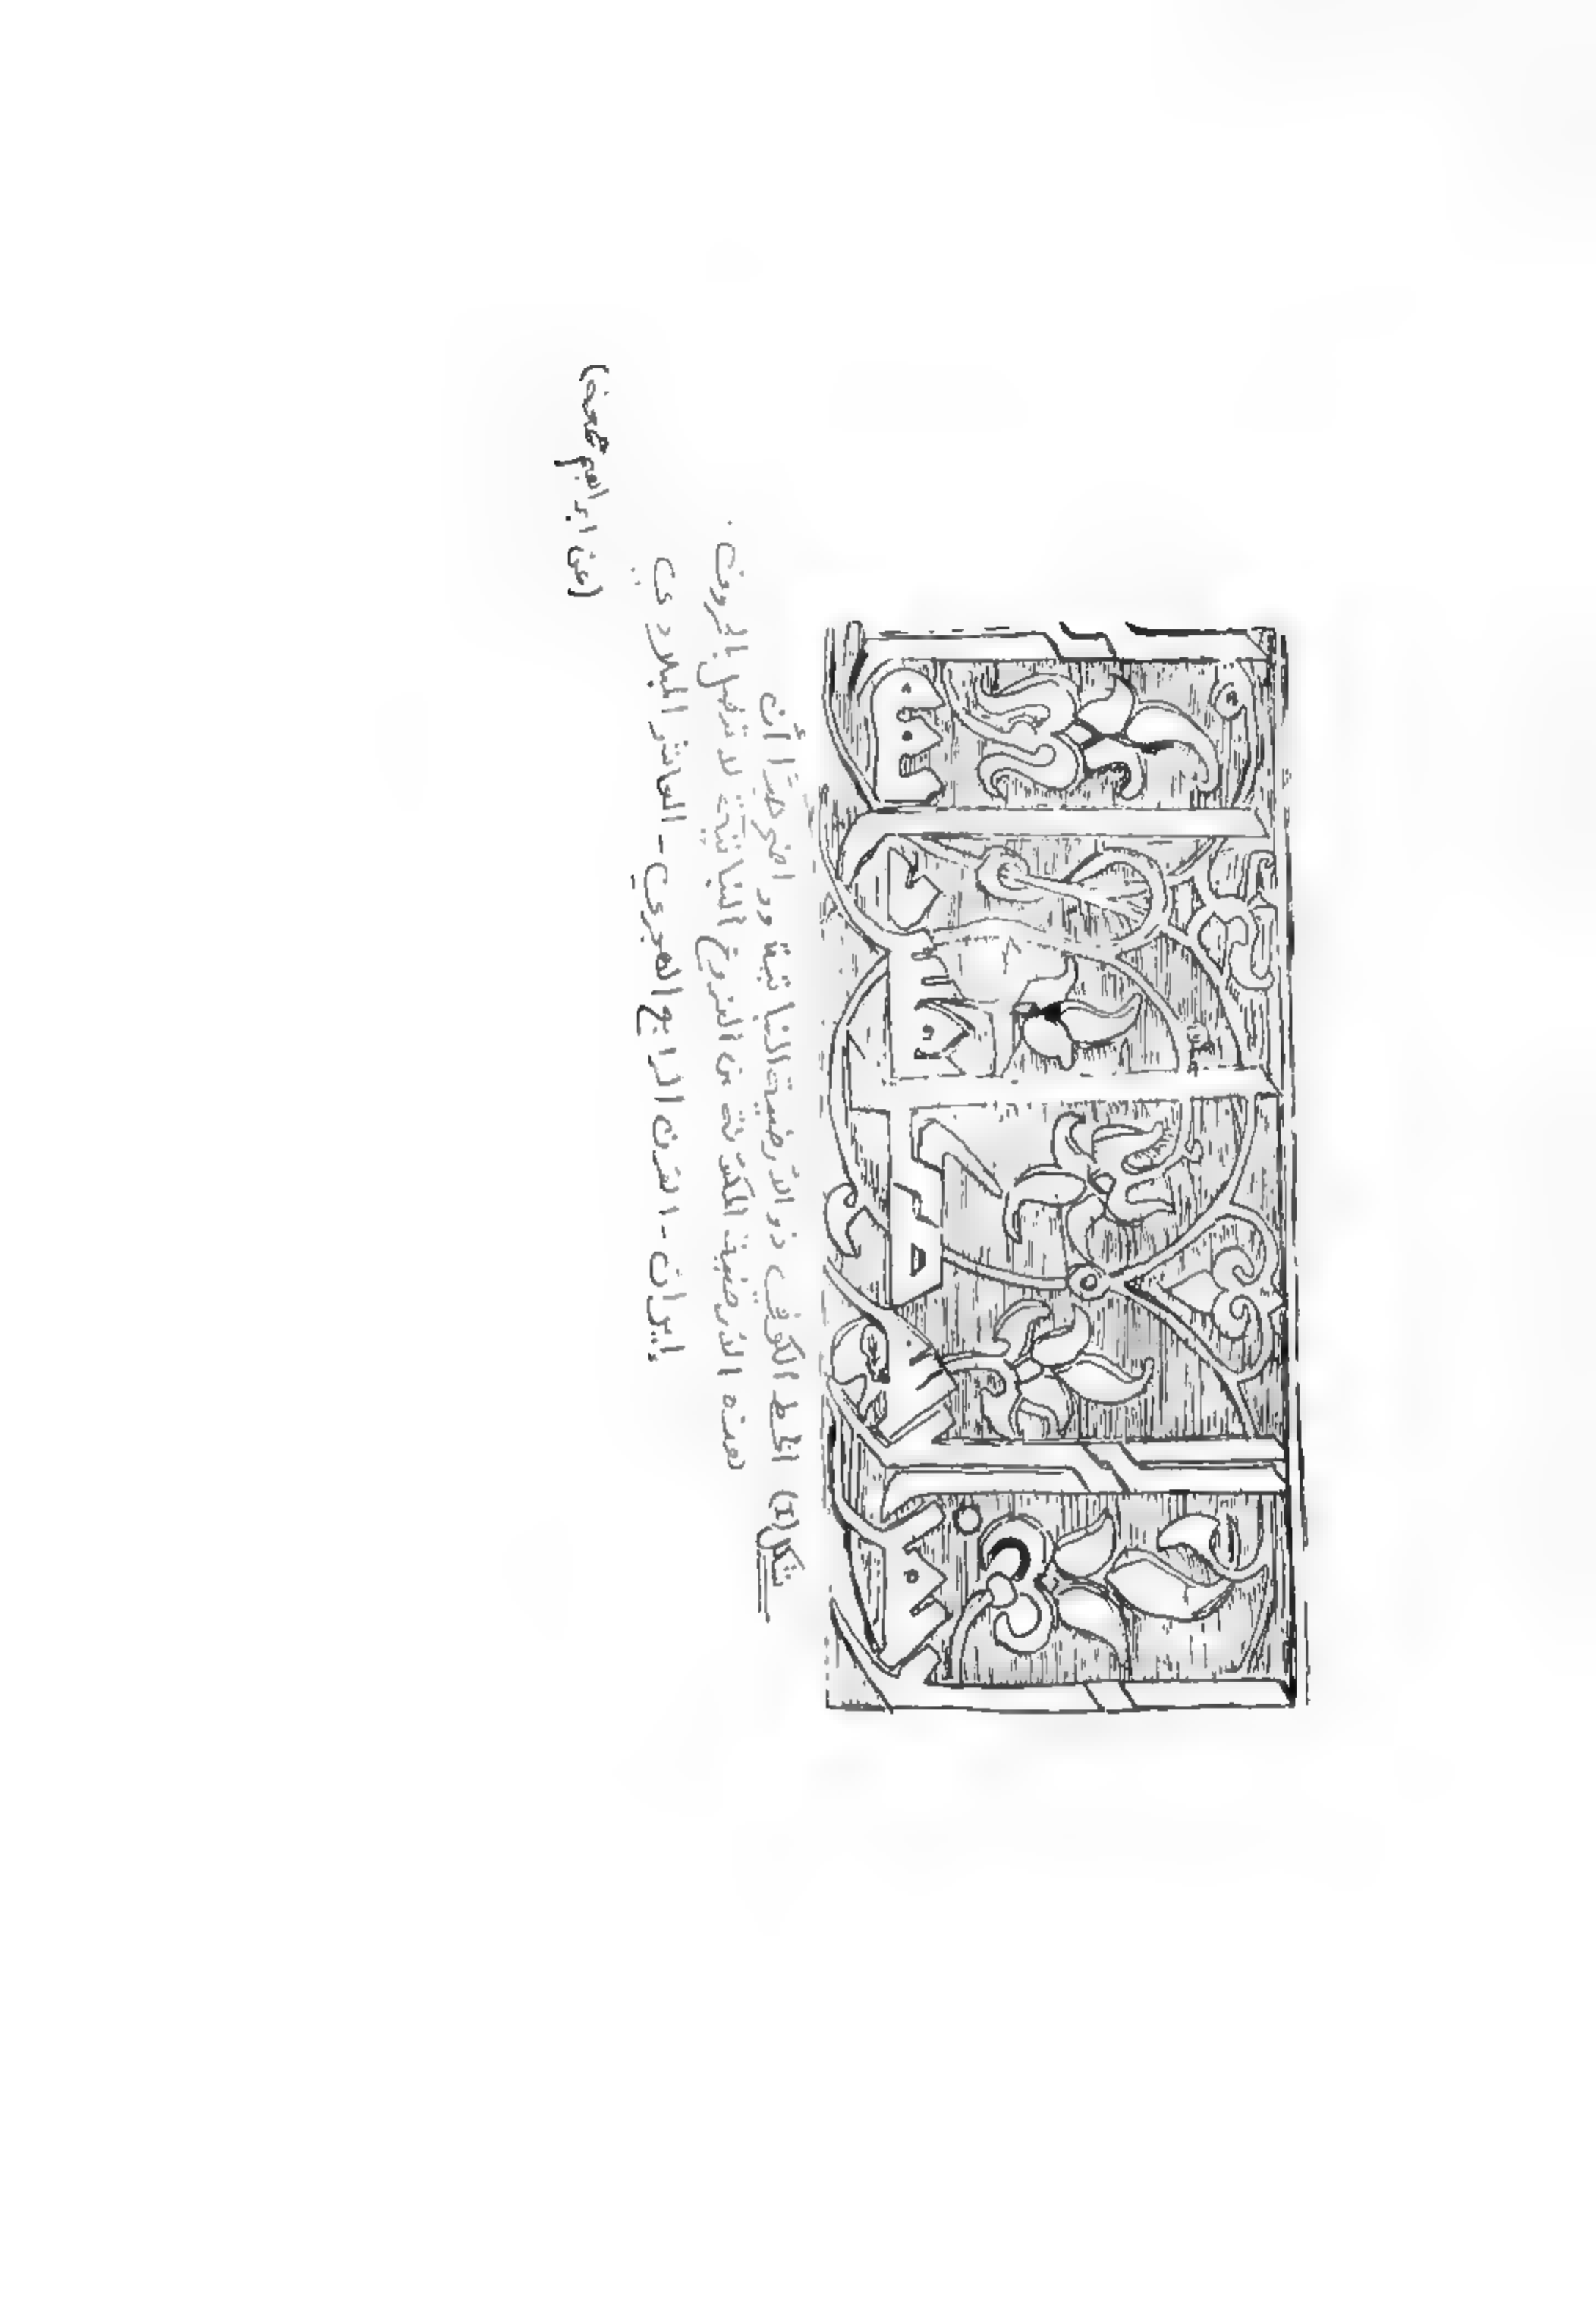 شكل (٢) الخط الكوفي ذو الأرضية النباتية وواضح هنا أن
هذه الأرضية المكونة من الفروع النباتية لا تتصل بالحروف.
إيران - القرن الرابع الهجري - العاشر الميلادي
(عن ابراهيم جمعة)